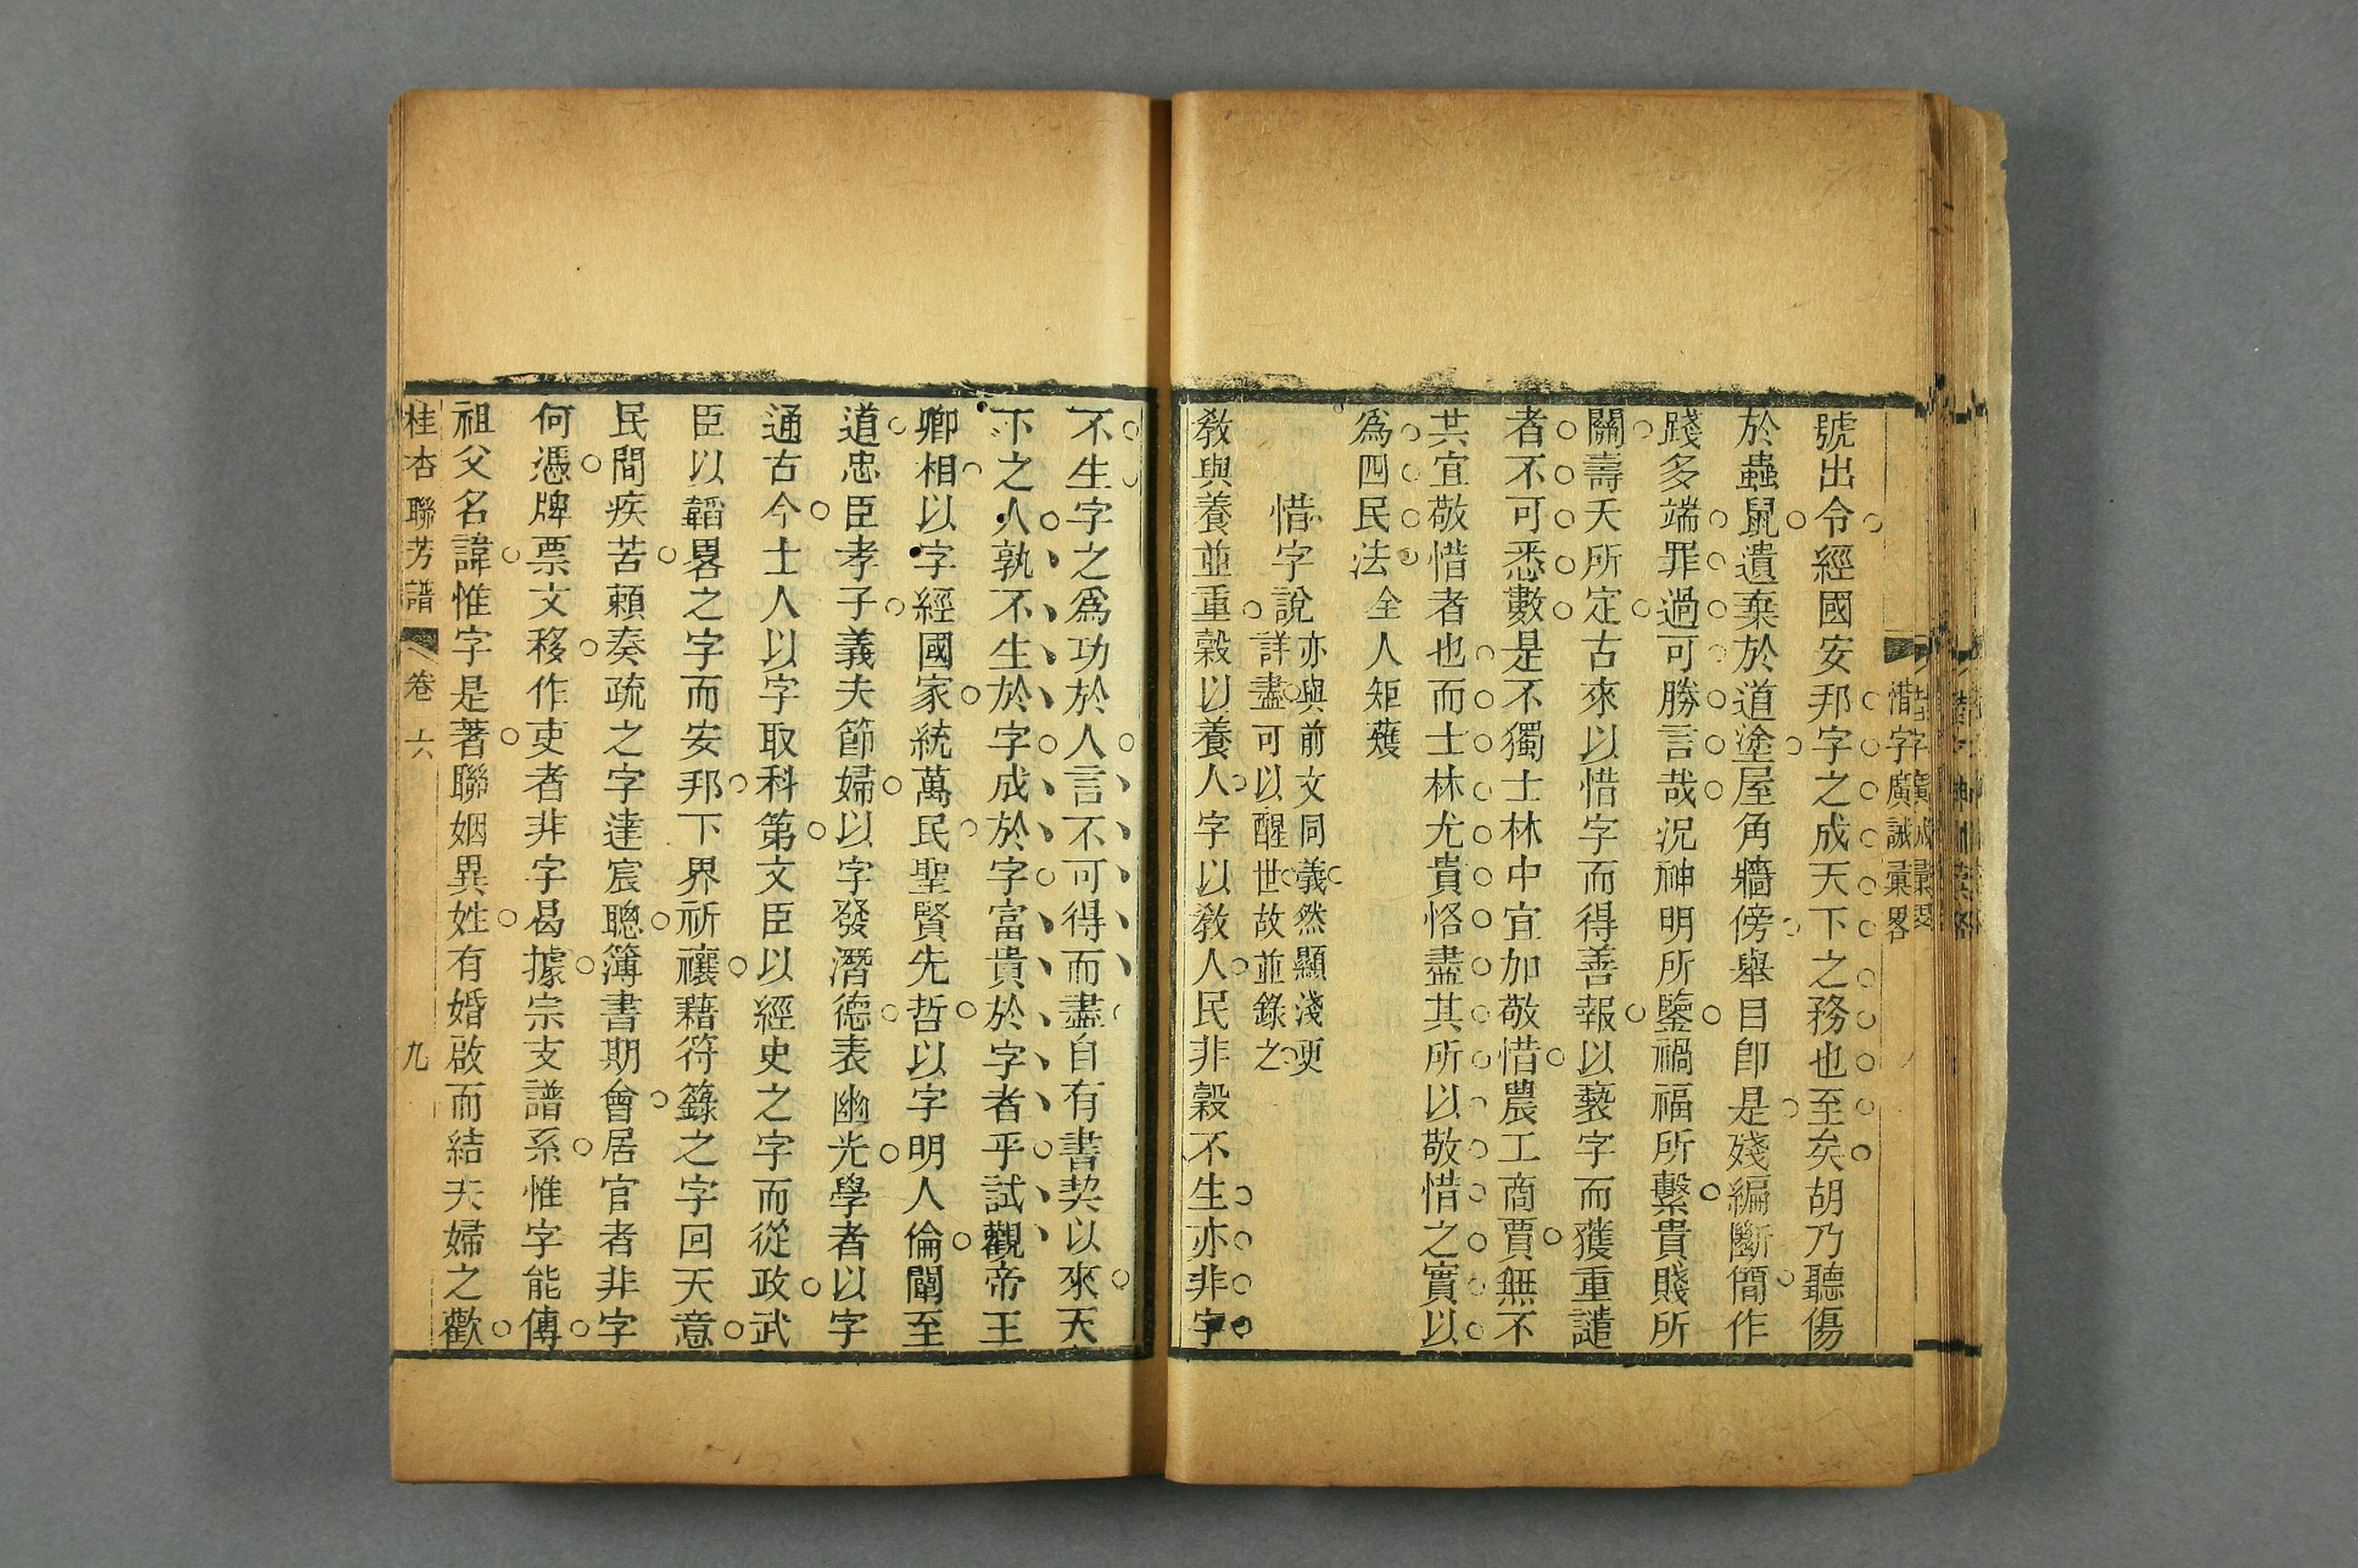 惜字廣誡彙畧
號出令經國安邦字之成天下之務也至矣胡乃聽傷
於蟲鼠遺棄於道塗屋角牆傍舉目卽是殘編斷簡作
踐多端罪過可勝言哉況神明所鑒禍福所繫貴賤所
關壽夭所定古來以惜字而得善報以褻字而獲重譴
者不可悉數是不獨士林中宜加敬惜農工商賈無不
共宜敬惜者也而士林尤貴恪盡其所以敬惜之實以
爲四民法 全人矩矱
惜字說
亦與前文同義然顯淺更
詳盡可以醒世故並錄之
敎與養並重穀以養人字以敎人民非穀不生亦非字
不生字之爲功於人言不可得而盡自有書契以來天
下之人孰不生於字成於字富貴於字者乎試觀帝王
卿相以字經國家統萬民聖賢先哲以字明人倫闡至
道忠臣孝子義夫節婦以字發潛德表幽光學者以字
通古今士人以字取科第文臣以經史之字而從政武
臣以韜畧之字而安邦下界祈禳藉符籙之字回天意
民間疾苦賴奏疏之字達宸聰簿書期會居官者非字
何憑牌票文移作吏者非字曷據宗支譜系惟字能傳
祖父名諱惟字是著聯姻異姓有婚啟而結夫婦之歡
桂杏聯芳譜 卷六 九